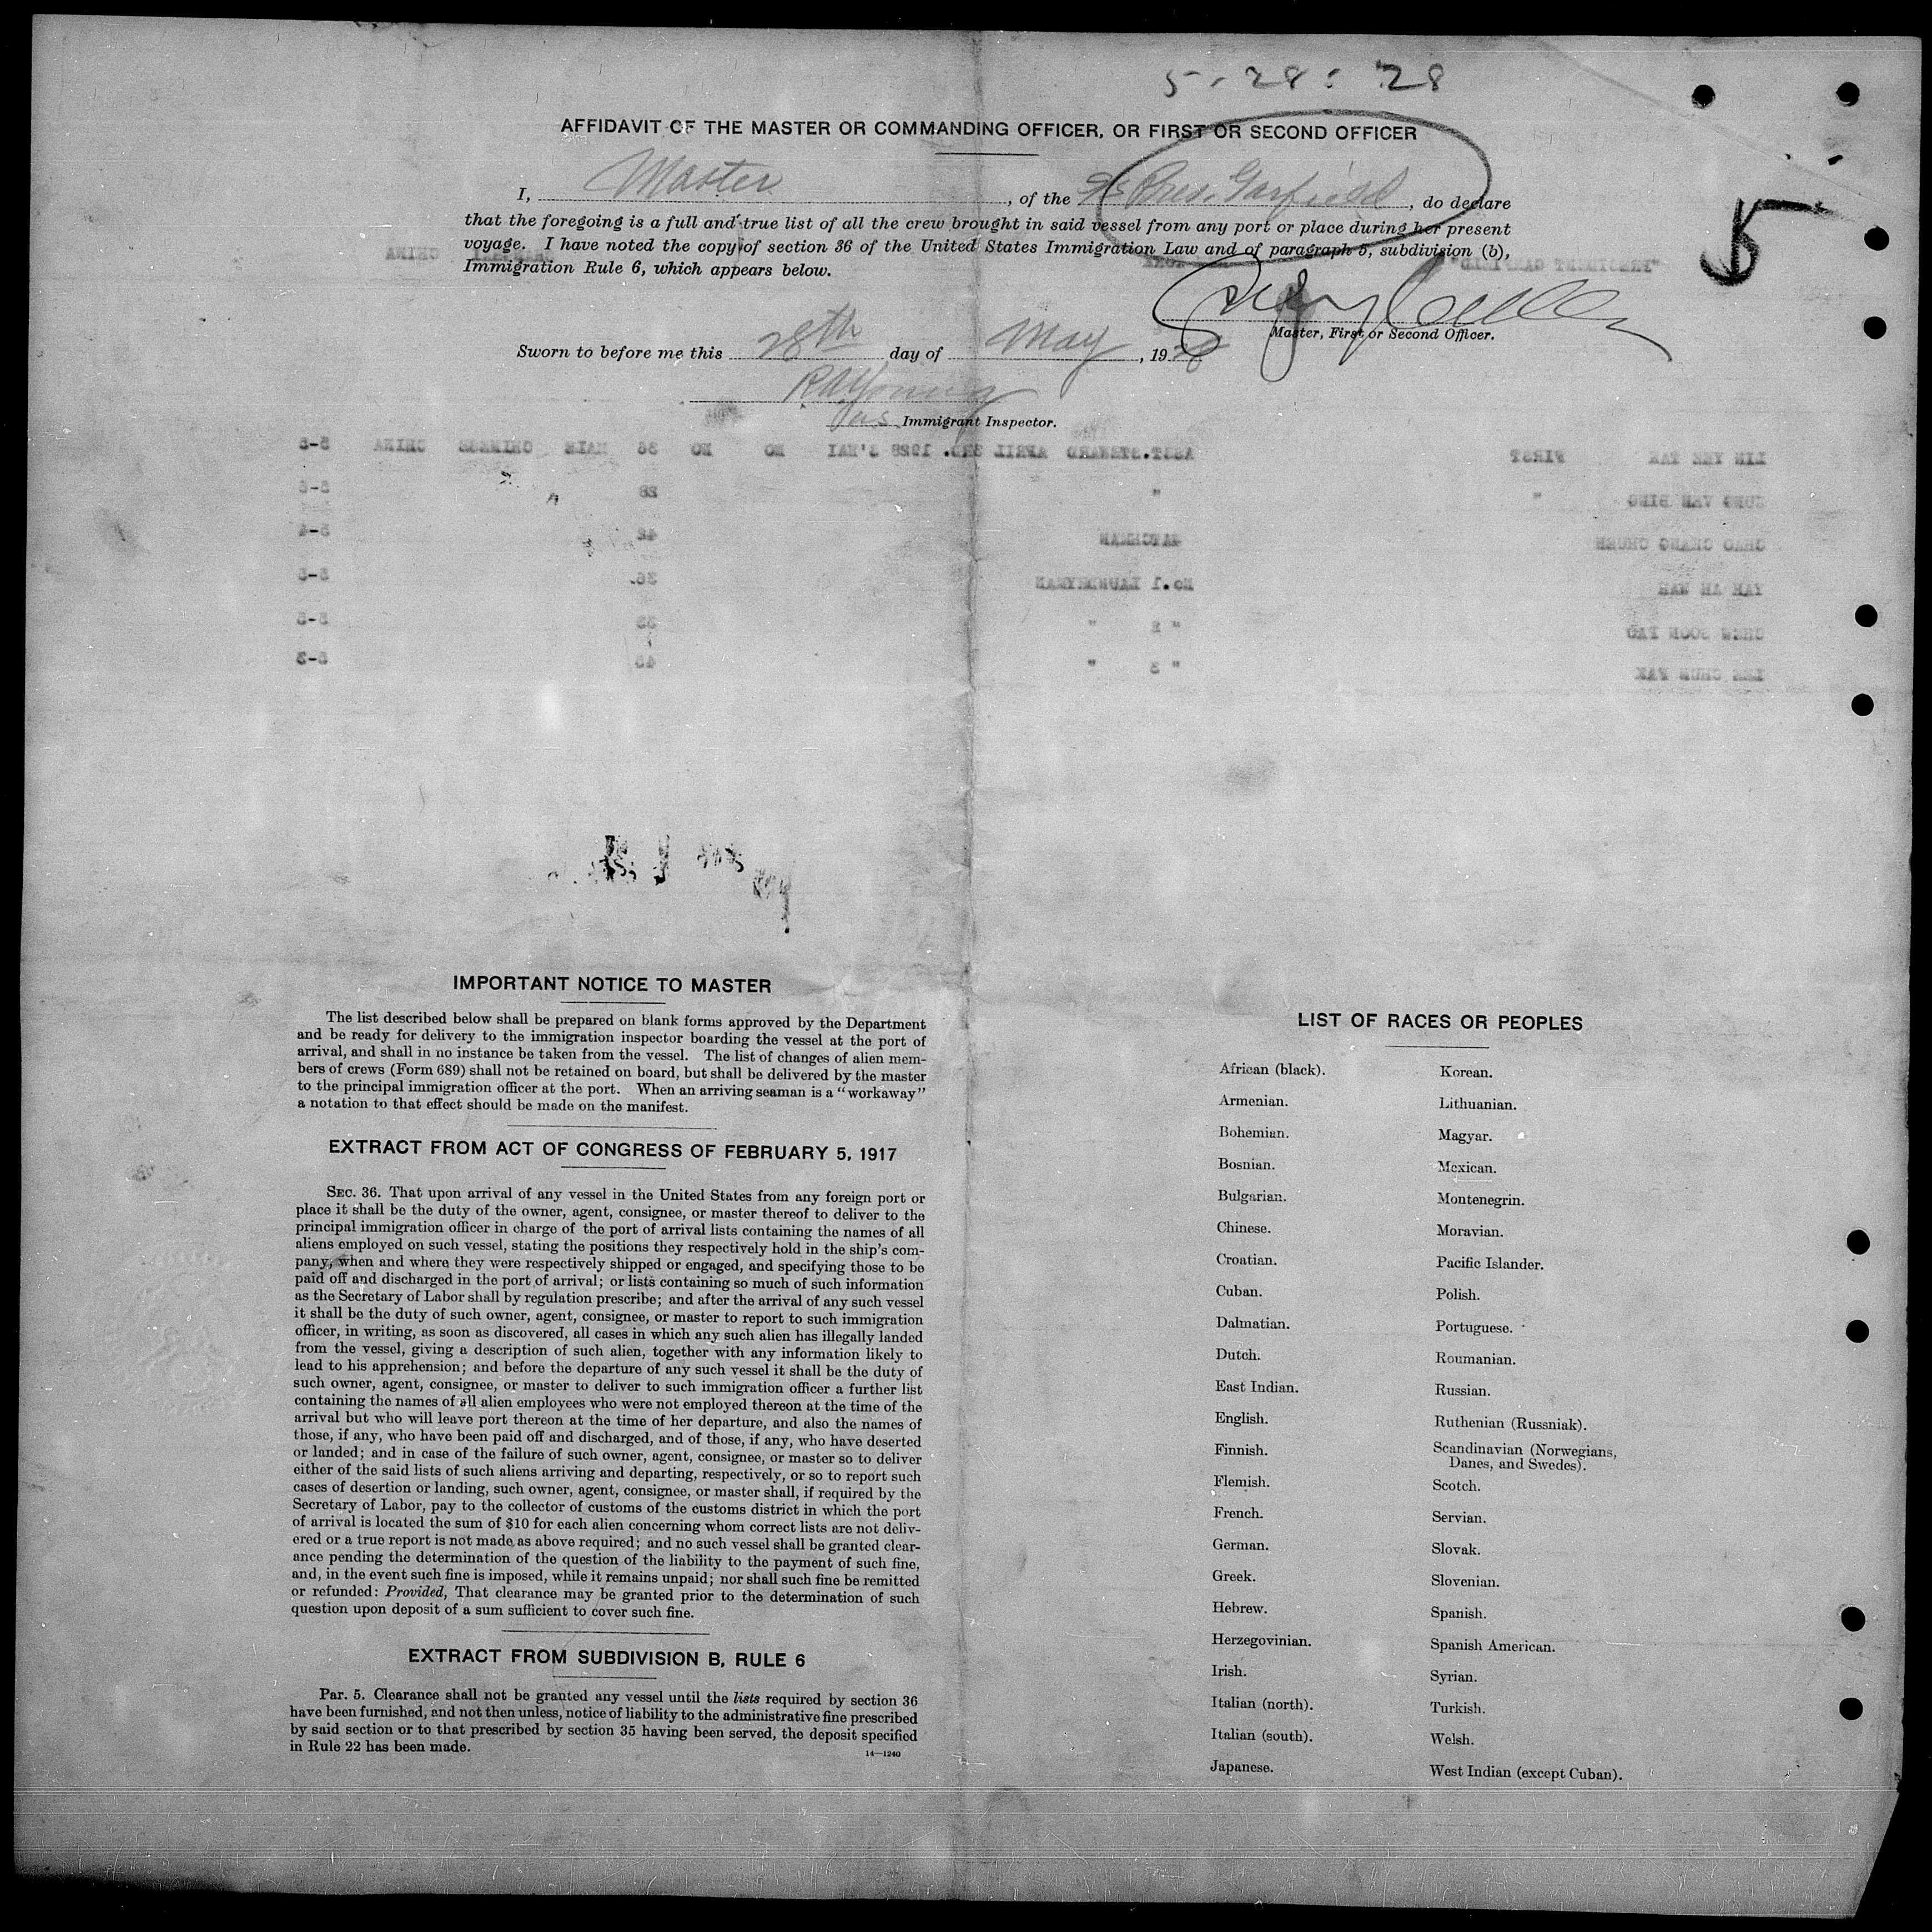 5-28-28
AFFIDAVIT OF THE MASTER OR COMMANDING OFFICER, OR FIRST OR SECOND OFFICER
I, Master, of the SS Pres. Garfield, do declare
that the foregoing is a full and true list of all the crew brought in said vessel from any port or place during her present
voyage. I have noted the copy of section 36 of the United States Immigration Law and of paragraph 5, subdivision (b),
Immigration Rule 6, which appears below.
5
Master, First or Second Officer.
Sworn to before me this 28th day of May, 1928
Immigrant Inspector.
IMPORTANT NOTICE TO MASTER
The list described below shall be prepared on blank forms approved by the Department
and be ready for delivery to the immigration inspector boarding the vessel at the port of
arrival, and shall in no instance be taken from the vessel. The list of changes of alien mem-
bers of crews (Form 689) shall not be retained on board, but shall be delivered by the master
to the principal immigration officer at the port. When an arriving seaman is a "workaway"
a notation to that effect should be made on the manifest.
EXTRACT FROM ACT OF CONGRESS OF FEBRUARY 5, 1917
SEC. 36. That upon arrival of any vessel in the United States from any foreign port or
place it shall be the duty of the owner, agent, consignee, or master thereof to deliver to the
principal immigration officer in charge of the port of arrival lists containing the names of all
aliens employed on such vessel, stating the positions they respectively hold in the ship's com-
pany, when and where they were respectively shipped or engaged, and specifying those to be
paid off and discharged in the port of arrival; or lists containing so much of such information
as the Secretary of Labor shall by regulation prescribe; and after the arrival of any such vessel
it shall be the duty of such owner, agent, consignee, or master to report to such immigration
officer, in writing, as soon as discovered, all cases in which any such alien has illegally landed
from the vessel, giving a description of such alien, together with any information likely to
lead to his apprehension; and before the departure of any such vessel it shall be the duty of
such owner, agent, consignee, or master to deliver to such immigration officer a further list
containing the names of all alien employees who were not employed thereon at the time of the
arrival but who will leave port thereon at the time of her departure, and also the names of
those, if any, who have been paid off and discharged, and of those, if any, who have deserted
or landed; and in case of the failure of such owner, agent, consignee, or master so to deliver
either of the said lists of such aliens arriving and departing, respectively, or so to report such
cases of desertion or landing, such owner, agent, consignee, or master shall, if required by the
Secretary of Labor, pay to the collector of customs of the customs district in which the port
of arrival is located the sum of $10 for each alien concerning whom correct lists are not deliv-
ered or a true report is not made as above required; and no such vessel shall be granted clear-
ance pending the determination of the question of the liability to the payment of such fine,
and, in the event such fine is imposed, while it remains unpaid; nor shall such fine be remitted
or refunded: Provided, That clearance may be granted prior to the determination of such
question upon deposit of a sum sufficient to cover such fine.
EXTRACT FROM SUBDIVISION B, RULE 6
Par. 5. Clearance shall not be granted any vessel until the lists required by section 36
have been furnished, and not then unless, notice of liability to the administrative fine prescribed
by said section or to that prescribed by section 35 having been served, the deposit specified
in Rule 22 has been made.
14—1240
LIST OF RACES OR PEOPLES
African (black).
Armenian.
Bohemian.
Bosnian.
Bulgarian.
Chinese.
Croatian.
Cuban.
Dalmatian.
Dutch.
East Indian.
English.
Finnish.
Flemish.
French.
German.
Greek.
Hebrew.
Herzegovinian.
Irish.
Italian (north).
Italian (south).
Japanese.
Korean.
Lithuanian.
Magyar.
Mexican.
Montenegrin.
Moravian.
Pacific Islander.
Polish.
Portuguese.
Roumanian.
Russian.
Ruthenian (Russniak).
Scandinavian (Norwegians,
Danes, and Swedes).
Scotch.
Servian.
Slovak.
Slovenian.
Spanish.
Spanish American.
Syrian.
Turkish.
Welsh.
West Indian (except Cuban).